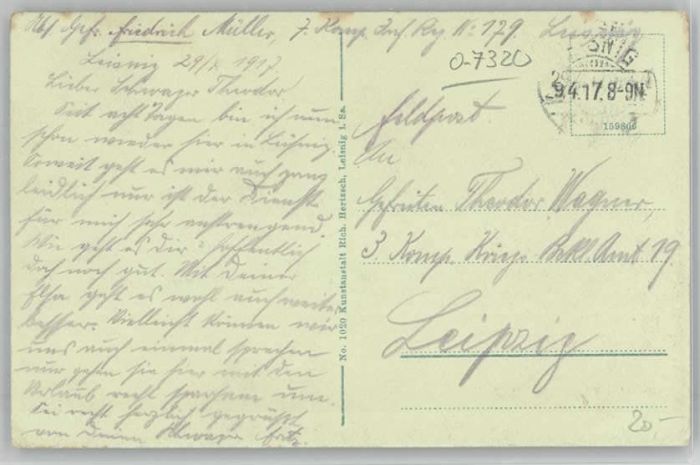 Abs. Gefr. Friedrich Müller, 7. Komp. Inf. Rg. No. 179.
Leisnig 29/. 1917
Lieber Schwager Theodor!
Seit acht Tagen bin ich nun
schon wieder hier in Leisnig.
Soweit geht es mir auch ganz
leidlich nur ist der Dienst
für mich sehr anstrengend.
Wie geht es dir? hoffentlich
doch noch gut. Mit Deiner
Elsa geht es wohl auch weiter
besser. Vielleicht können wir
uns auch einmal sprechen
nur gehen sie hier mit den
Urlaub recht sparsam um.
Sei recht herzlich gegrüßt
von Deinem Schwager Fritz.
No. 1020 Kunstanstalt Rich. Hertzsch, Leisnig i. Sa.
0-7320
9.4.17.8-9N
159866
Feldpost.
An
Gefreiten Theodor Wagner,
3. Komp. Amt 19.
Leipzig
20,-